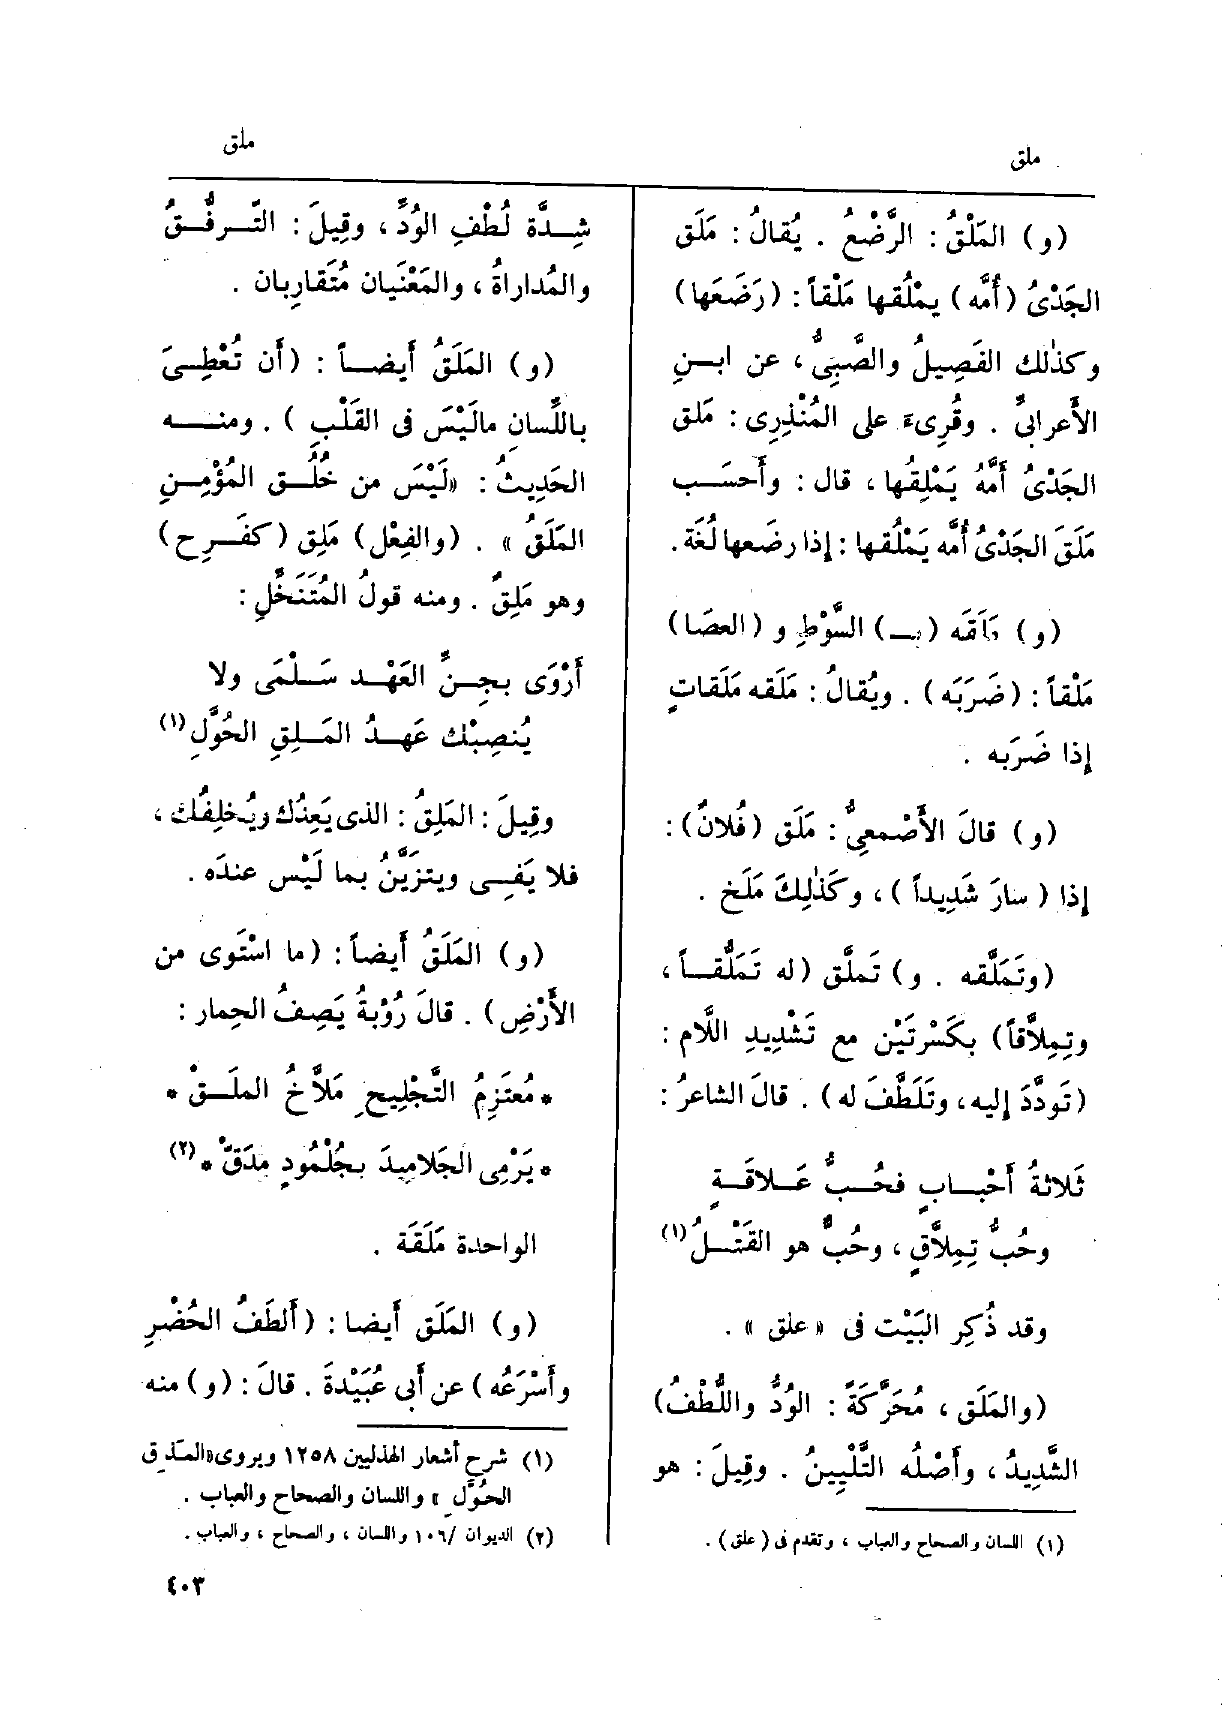 ملق
(و) المَلْقُ : الرَّضْعُ . يُقالُ : مَلَق
الجَدْىُ (أُمَّه) يمْلُقها مَلْقاً : (رَضَعَها)
وكذٰلك الفَصِيلُ والصَّبِىُّ ، عن ابـنِ
الأَعرابىِّ . وقُرِىءَ على المُنْذِرِى : مَلق
الجَدْىُ أُمَّهُ يَمْلِقُها ، قال : وأَحسَـب
مَلَقَ الجَدْىُ أُمَّه يَمْلُقها : إذا رضَعها لُغَة.
(و) مَلَقَه (بـ) السَّوْطِ و (العصَا)
مَلْقاً : (ضَرَبَه) . ويُقالُ : مَلَقه مَلَقاتٍ
إذا ضَرَبه .
(و) قالَ الأَصْمعِىُّ : مَلَق (فُلانٌ) :
إذا ( سارَ شَدِيداً ) ، وكَذٰلِكَ مَلَخ .
(وتَمَلَّقه . و) تَملَّق (له تَمَلُّقـاً ،
وتِمِلاَّقاً) بكَسْرتَيْن مع تَشْدِيدِ اللَّام :
(تَودَّدَ إليه، وتَلَطَّفَ له) . قالَ الشاعرُ :
ثَلاثةُ أَحْبـابٍ فحُـبُّ عَـلاقَـةٍ
وحُبُّ تِمِلاَّقٍ ، وحُبٌّ هو القَتْـلُ (١)
وقد ذُكِر البَيْت فى « علق » .
(والمَلَق ، مُحَرَّكَةً : الوُدُّ واللُّطْفُ)
الشَّدِيدُ ، وأَصْلُه التَّلْيِينُ . وقِيلَ : هو
(١) اللسان والصحاح والعباب ، وتقدم فى (علق) .
ملق
شِـدَّة لُطْفِ الوُدِّ ، وقِيلَ : التَّـرفُّـقُ
والمُداراةُ ، والمَعْنَيان مُتَقارِبان .
(و) المَلَقُ أَيضـاً : (أَن تُعْطِـىَ
باللِّسانِ مالَيْسَ فى القَلْبِ ) . ومنـه
الحَدِيثُ : «لَيْسَ من خُلُـق المُؤْمِـنِ
المَلَقُ » . (والفِعْل) مَلِق (كفَـرِح)
وهو مَلِقٌ . ومنه قولُ المُتَنَخِّلِ :
أَرْوَى بـجِـنِّ العَهْـد سَـلْمَى ولا
يُنصِبْك عَهـدُ المَـلِقِ الحُوَّلِ (١)
وقِيلَ : المَلِقُ : الذى يَعِدُك ويُخلِفُك ،
فلا يَفِـى ويتزَيَّنُ بما لَيْس عندَه .
(و) المَلَقُ أيضاً : (ما اسْتَوى من
الأَرْضِ) . قالَ رُؤْبةُ يَصِفُ الحِمار :
* مُعتَزِمُ التَّجْلِيحِ مَلاَّخُ الملَـقْ *
* يَرْمِى الجَلامِيدَ بجُلْمُودٍ مِدَقّْ * (٢)
الواحدة مَلَقَة .
(و) المَلَق أَيضا : (أَلطَفُ الحُضْرِ
وأَسْرَعُه) عن أَبى عُبَيْدةَ . قالَ : (و) منه
(١) شرح أشعار الهذليين ١٢٥٨ ويروى «المَـذِق
الحُوَّل » واللسان والصحاح والعباب .
(٢) الديوان /١٠٦ واللسان ، والصحاح ، والعباب .
٤٠٣